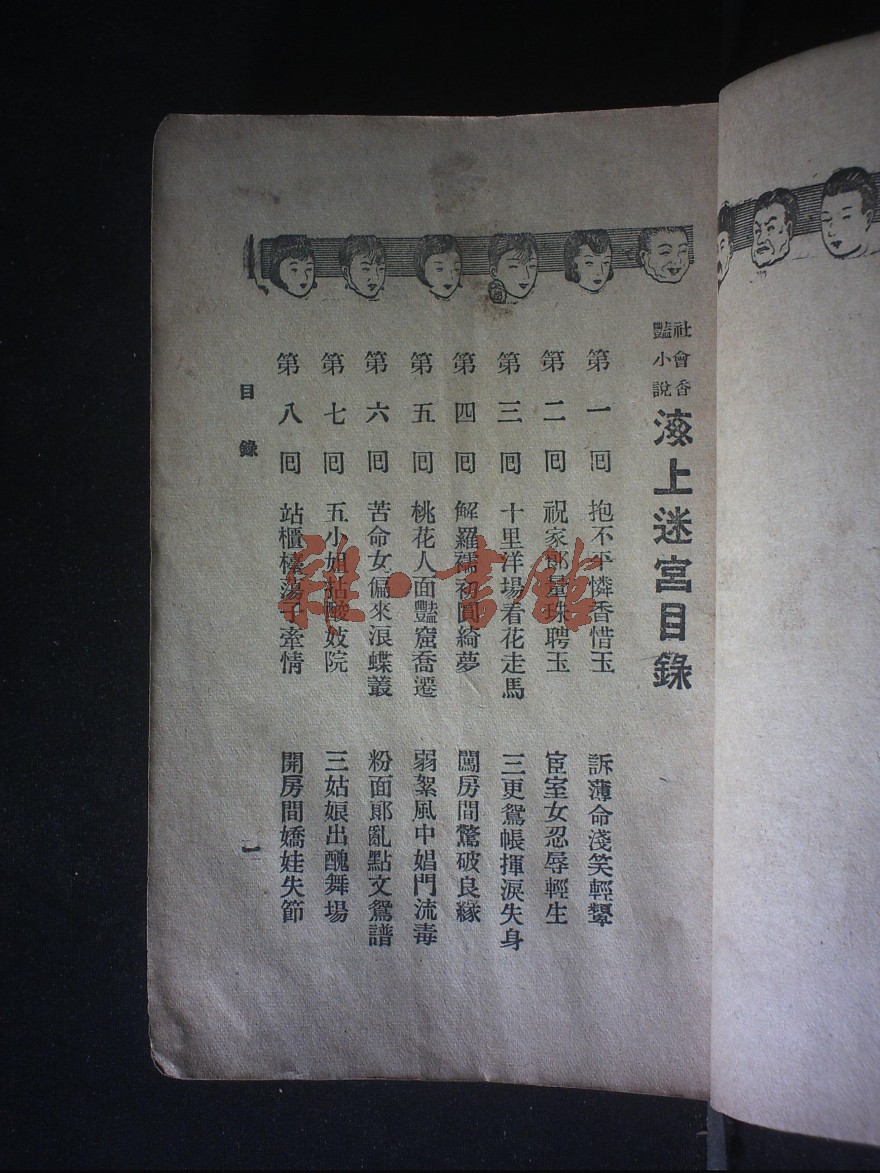 社會香豔小說 海上迷宮目錄
第一回 抱不平憐香惜玉 訴薄命淺笑輕顰
第二回 祝家郎量珠聘玉 宦室女忍辱輕生
第三回 十里洋場看花走馬 三更鴛帳揮淚失身
第四回 解羅襦初圓綺夢 闖房間驚破良緣
第五回 桃花人面豔窟喬遷 弱絮風中娼門流毒
第六回 苦命女偏來浪蝶叢 粉面郎亂點文鴛譜
第七回 五小姐拈酸妓院 三姑娘出醜舞場
第八回 站櫃檯蕩子牽情 開房間嬌娃失節
目錄
一
雜·書館